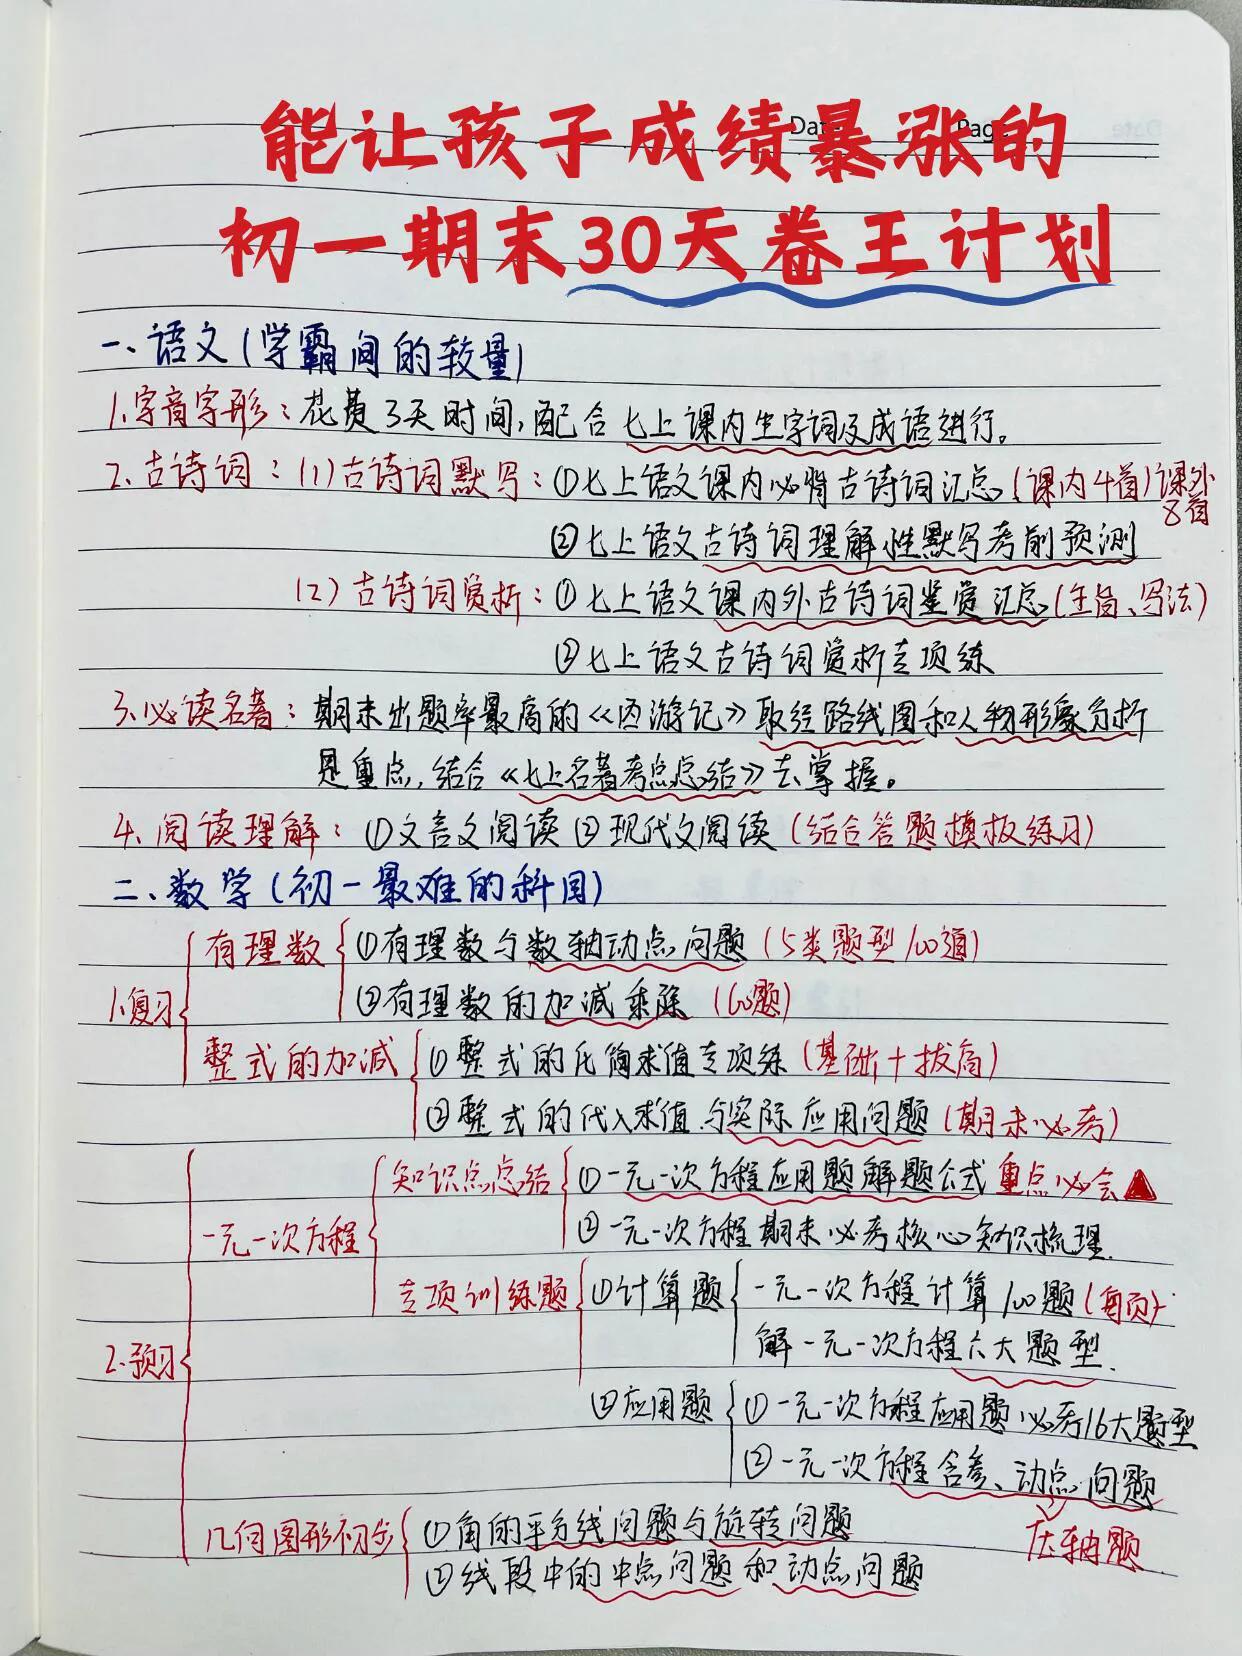 Date
Page
Date
能让孩子成绩暴涨的
初一期末30天卷王计划
一、语文(学霸间的较量)
1.字音字形：花费3天时间,配合七上课内生字词及成语进行。
2.古诗词：(1)古诗词默写：①七上语文课内必背古诗词汇总(课内4首)课外8首
②七上语文古诗词理解性默写考前预测
(2)古诗词赏析：①七上语文课内外古诗词鉴赏汇总(主旨、写法)
②七上语文古诗词赏析专项练
3.必读名著：期末出题率最高的《西游记》取经路线图和人物形象分析
是重点,结合《七上名著考点总结》去掌握。
4.阅读理解：①文言文阅读②现代文阅读(结合答题模板练习)
二、数学(初一最难的科目)
1.复习
有理数
①有理数与数轴动点问题(5类题型100道)
②有理数的加减乘除(100题)
整式的加减
①整式的化简求值专项练(基础+拔高)
②整式的代入求值与实际应用问题(期末必考)
2.预习
一元一次方程
知识点总结
①一元一次方程应用题解题公式 重点必会
②一元一次方程期末必考核心知识梳理.
专项训练题
①计算题
一元一次方程计算100题(每页)
解一元一次方程六大题型.
②应用题
①一元一次方程应用题必考16大题型
②一元一次方程含参、动点问题
压轴题
几何图形初步
①角的平分线问题与旋转问题
②线段中的中点问题和动点问题